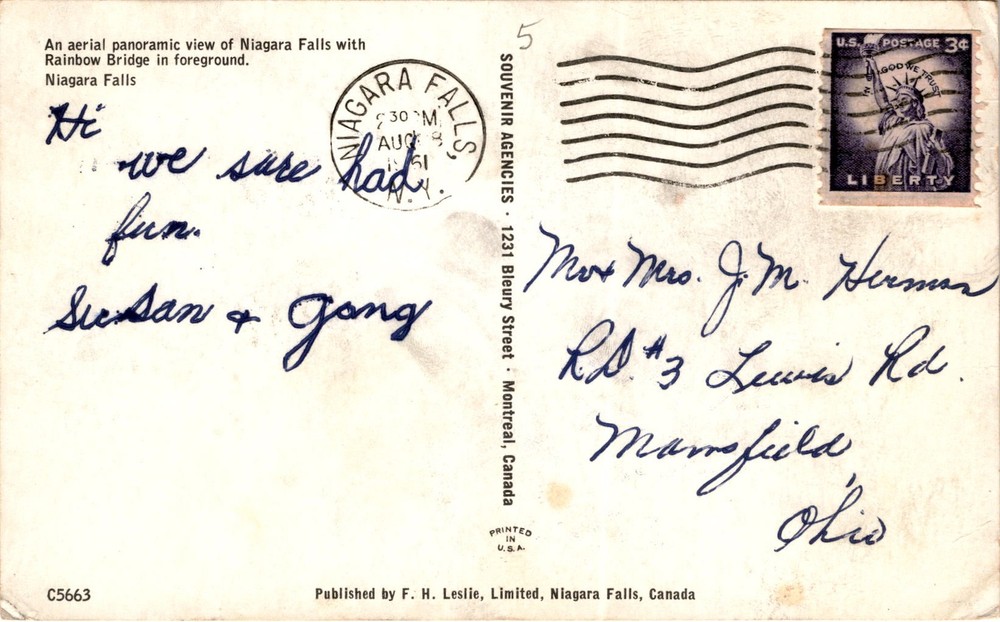 An aerial panoramic view of Niagara Falls with
Rainbow Bridge in foreground.
Niagara Falls
Hi
we sure had
fun.
Susan & Gang
C5663
NIAGARA FALLS,
30 PM
AUG 8
1961
N.Y.
5
SOUVENIR AGENCIES · 1231 Bleury Street · Montreal, Canada
PRINTED
IN
U.S.A.
U.S. POSTAGE 3¢
IN GOD WE TRUST
LIBERTY
Mr & Mrs. J. M. Herman
R.D. #3 Lewis Rd.
Mansfield,
Ohio
Published by F. H. Leslie, Limited, Niagara Falls, Canada